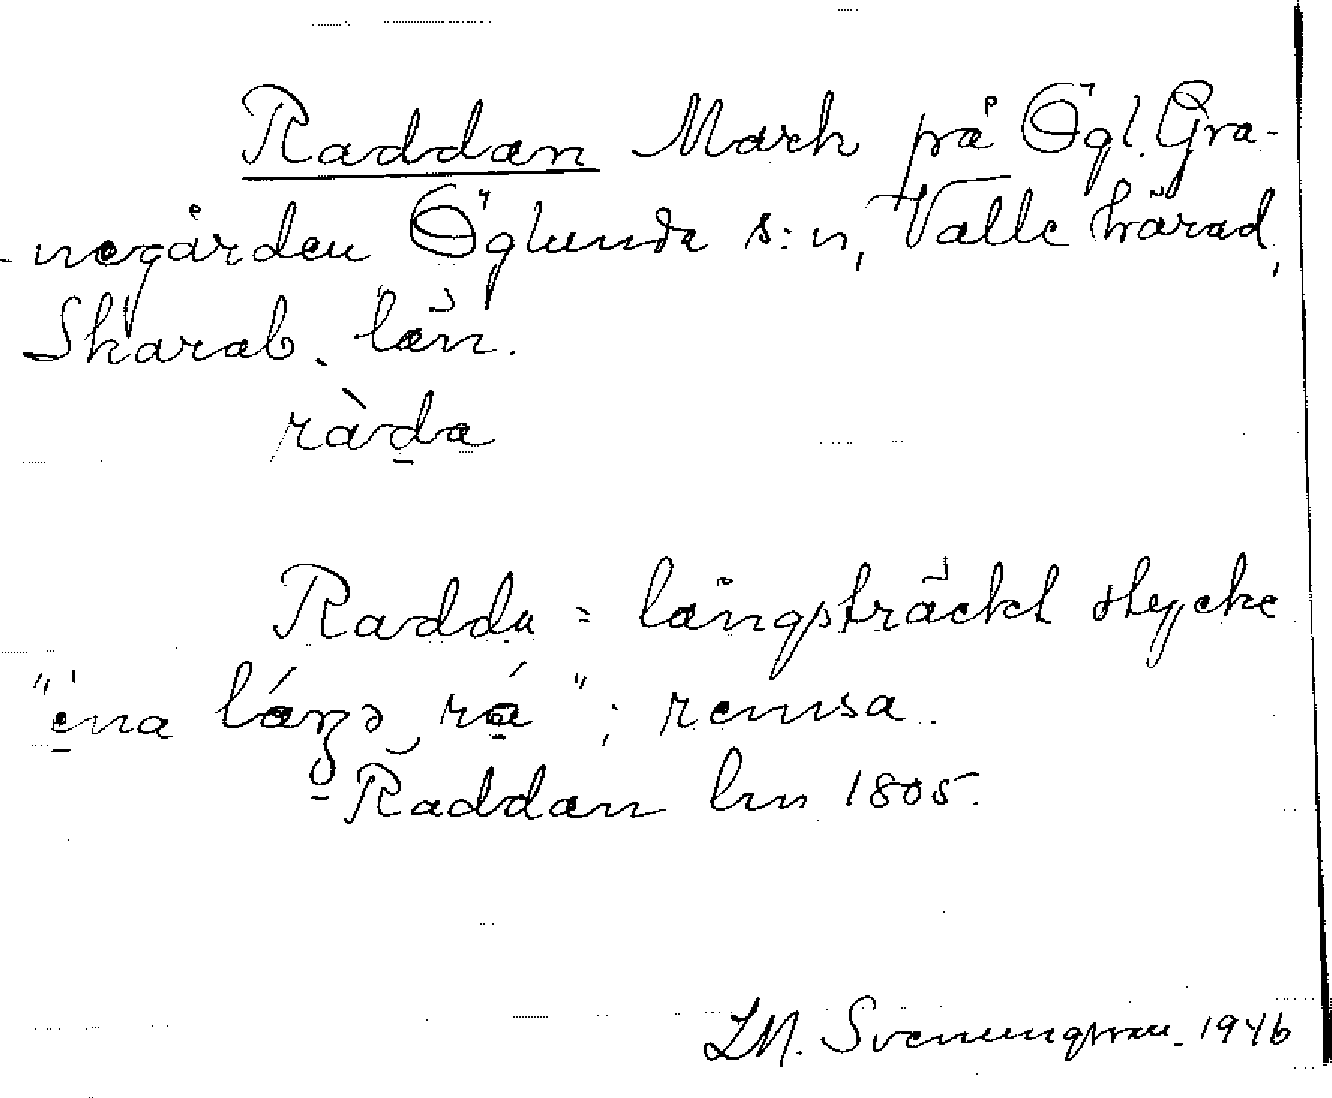 Raddan Mark på Ögl. Gra-
negården Öglunda s:n, Valle härad,
Skarab. län.
ràda
Radda = långsträckt stycke
"ena láŋə rá"; remsa.
Raddan lm 1805.
L.M. Svenungsson. 1946